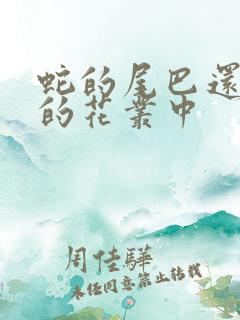 蛇的尾巴還
的花叢中
周佳驊
未經同意禁止轉載